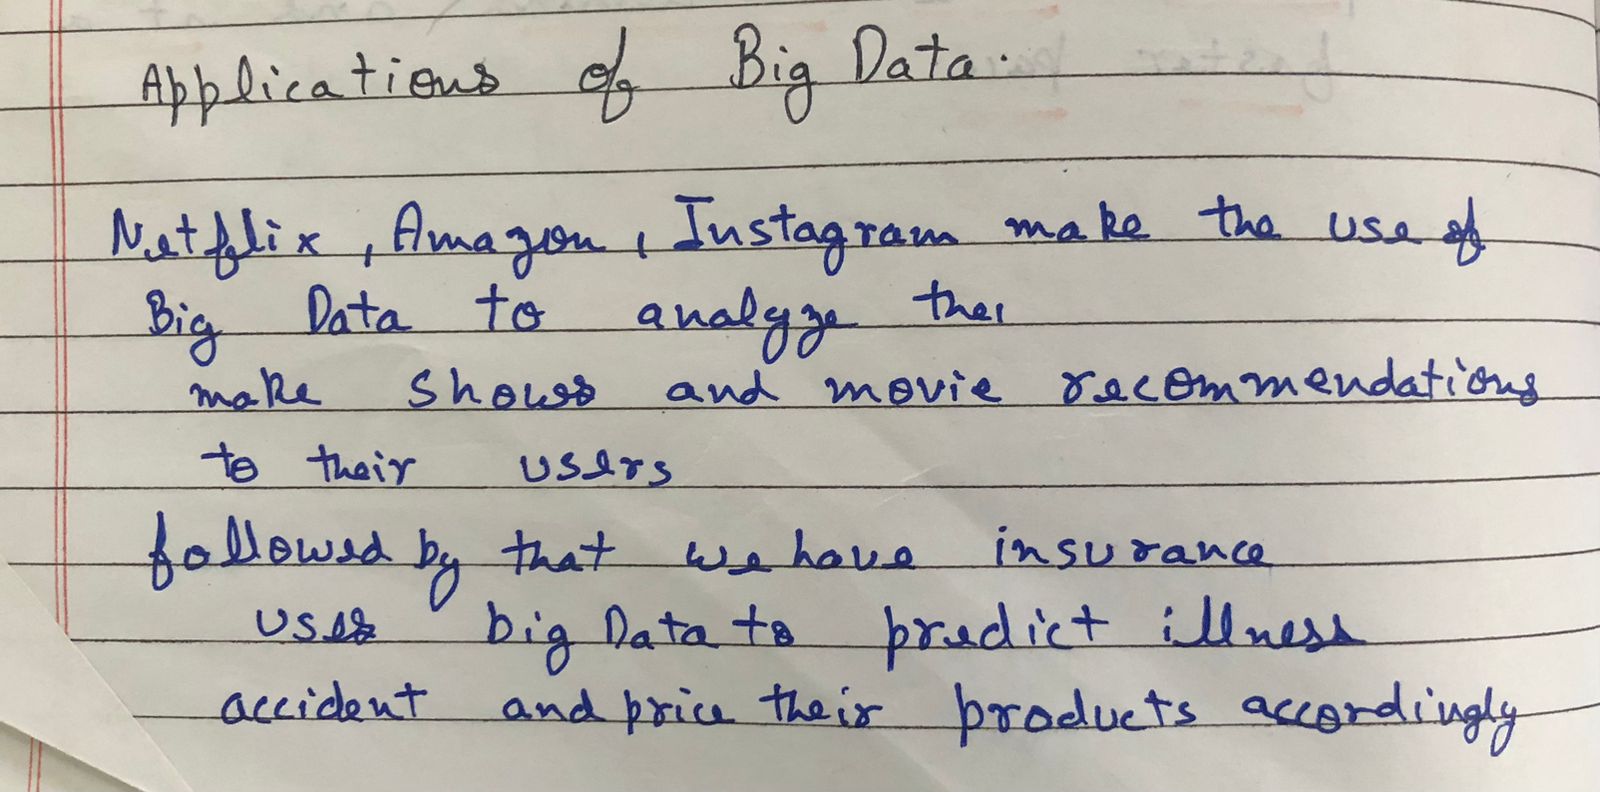 Applications of Big Data.
Netflix, Amazon, Instagram make the use of
Big Data to analyze thei
make shows and movie recommendations
to their users
followed by that we have insurance
uses big Data to predict illness
accident and price their products accordingly